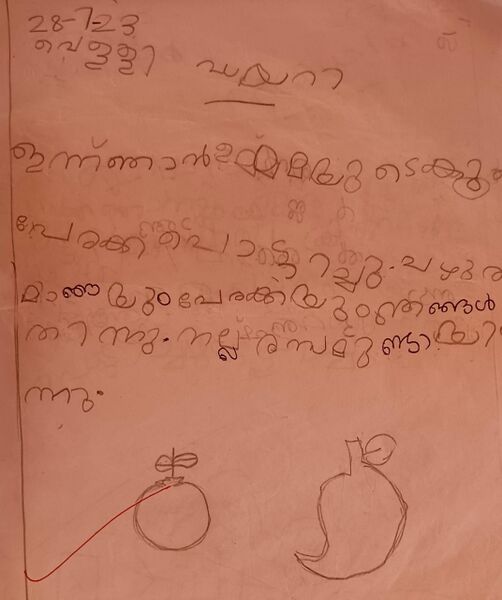 28-7-23
വെള്ളി
ഡയറി
ഇന്ന് ഞാൻ ഉമ്മയു ടെകും
പേരക്ക പൊട്ടിച്ചു. പഴുത്ത
മാങ്ങയും പേരക്കയും ഞങ്ങൾ
തിന്നു. നല്ല രസമുണ്ടായി
ന്നു.